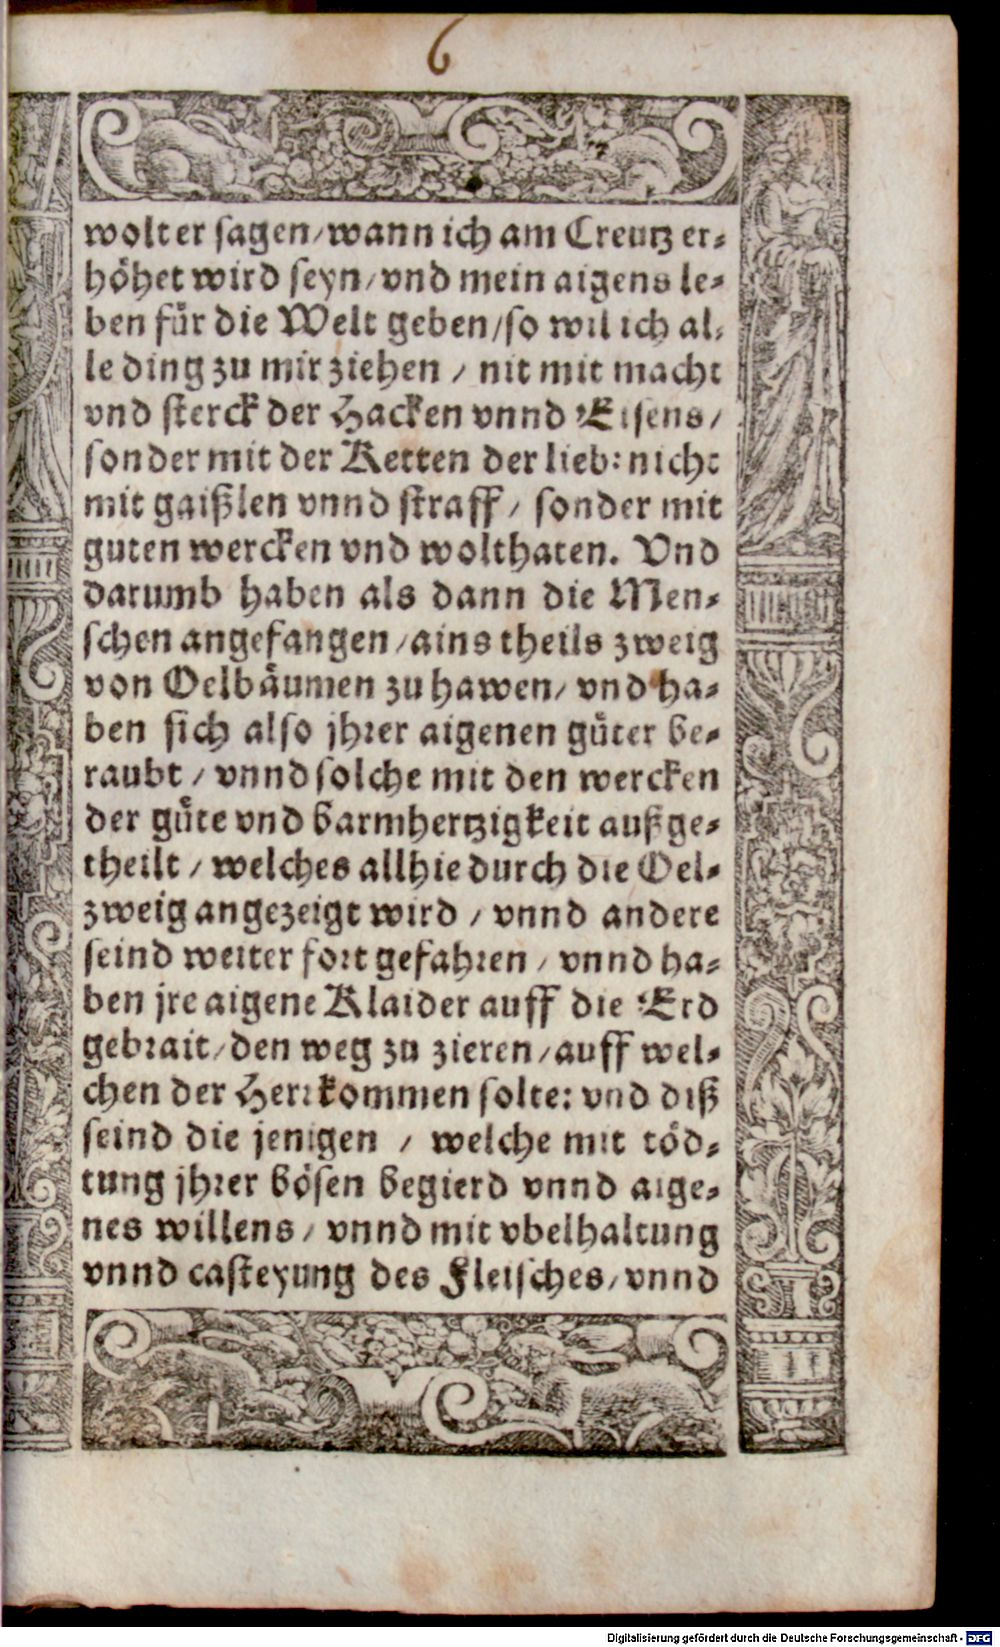 6
wolt er sagen/wann ich am Creutz er-
höhet wird seyn/vnd mein aigens le-
ben für die Welt geben/so wil ich al-
le ding zu mir ziehen / nit mit macht
vnd sterck der Hacken vnnd Eisens/
sonder mit der Ketten der lieb: nicht
mit gaißlen vnnd straff / sonder mit
guten wercken vnd wolthaten. Vnd
darumb haben als dann die Men-
schen angefangen/ains theils zweig
von Oelbäumen zu hawen/ vnd ha-
ben sich also jhrer aigenen güter be-
raubt / vnnd solche mit den wercken
der güte vnd barmhertzigkeit außge-
theilt / welches allhie durch die Oel-
zweig angezeigt wird / vnnd andere
seind weiter fort gefahren / vnnd ha-
ben jre aigene Klaider auff die Erd
gebrait/den weg zu zieren/auff wel-
chen der Herr kommen solte: vnd diß
seind die jenigen / welche mit töd-
tung jhrer bösen begierd vnnd aige-
nes willens / vnnd mit vbelhaltung
vnnd casteyung des Fleisches/vnnd
Digitalisierung gefördert durch die Deutsche Forschungsgemeinschaft - DFG